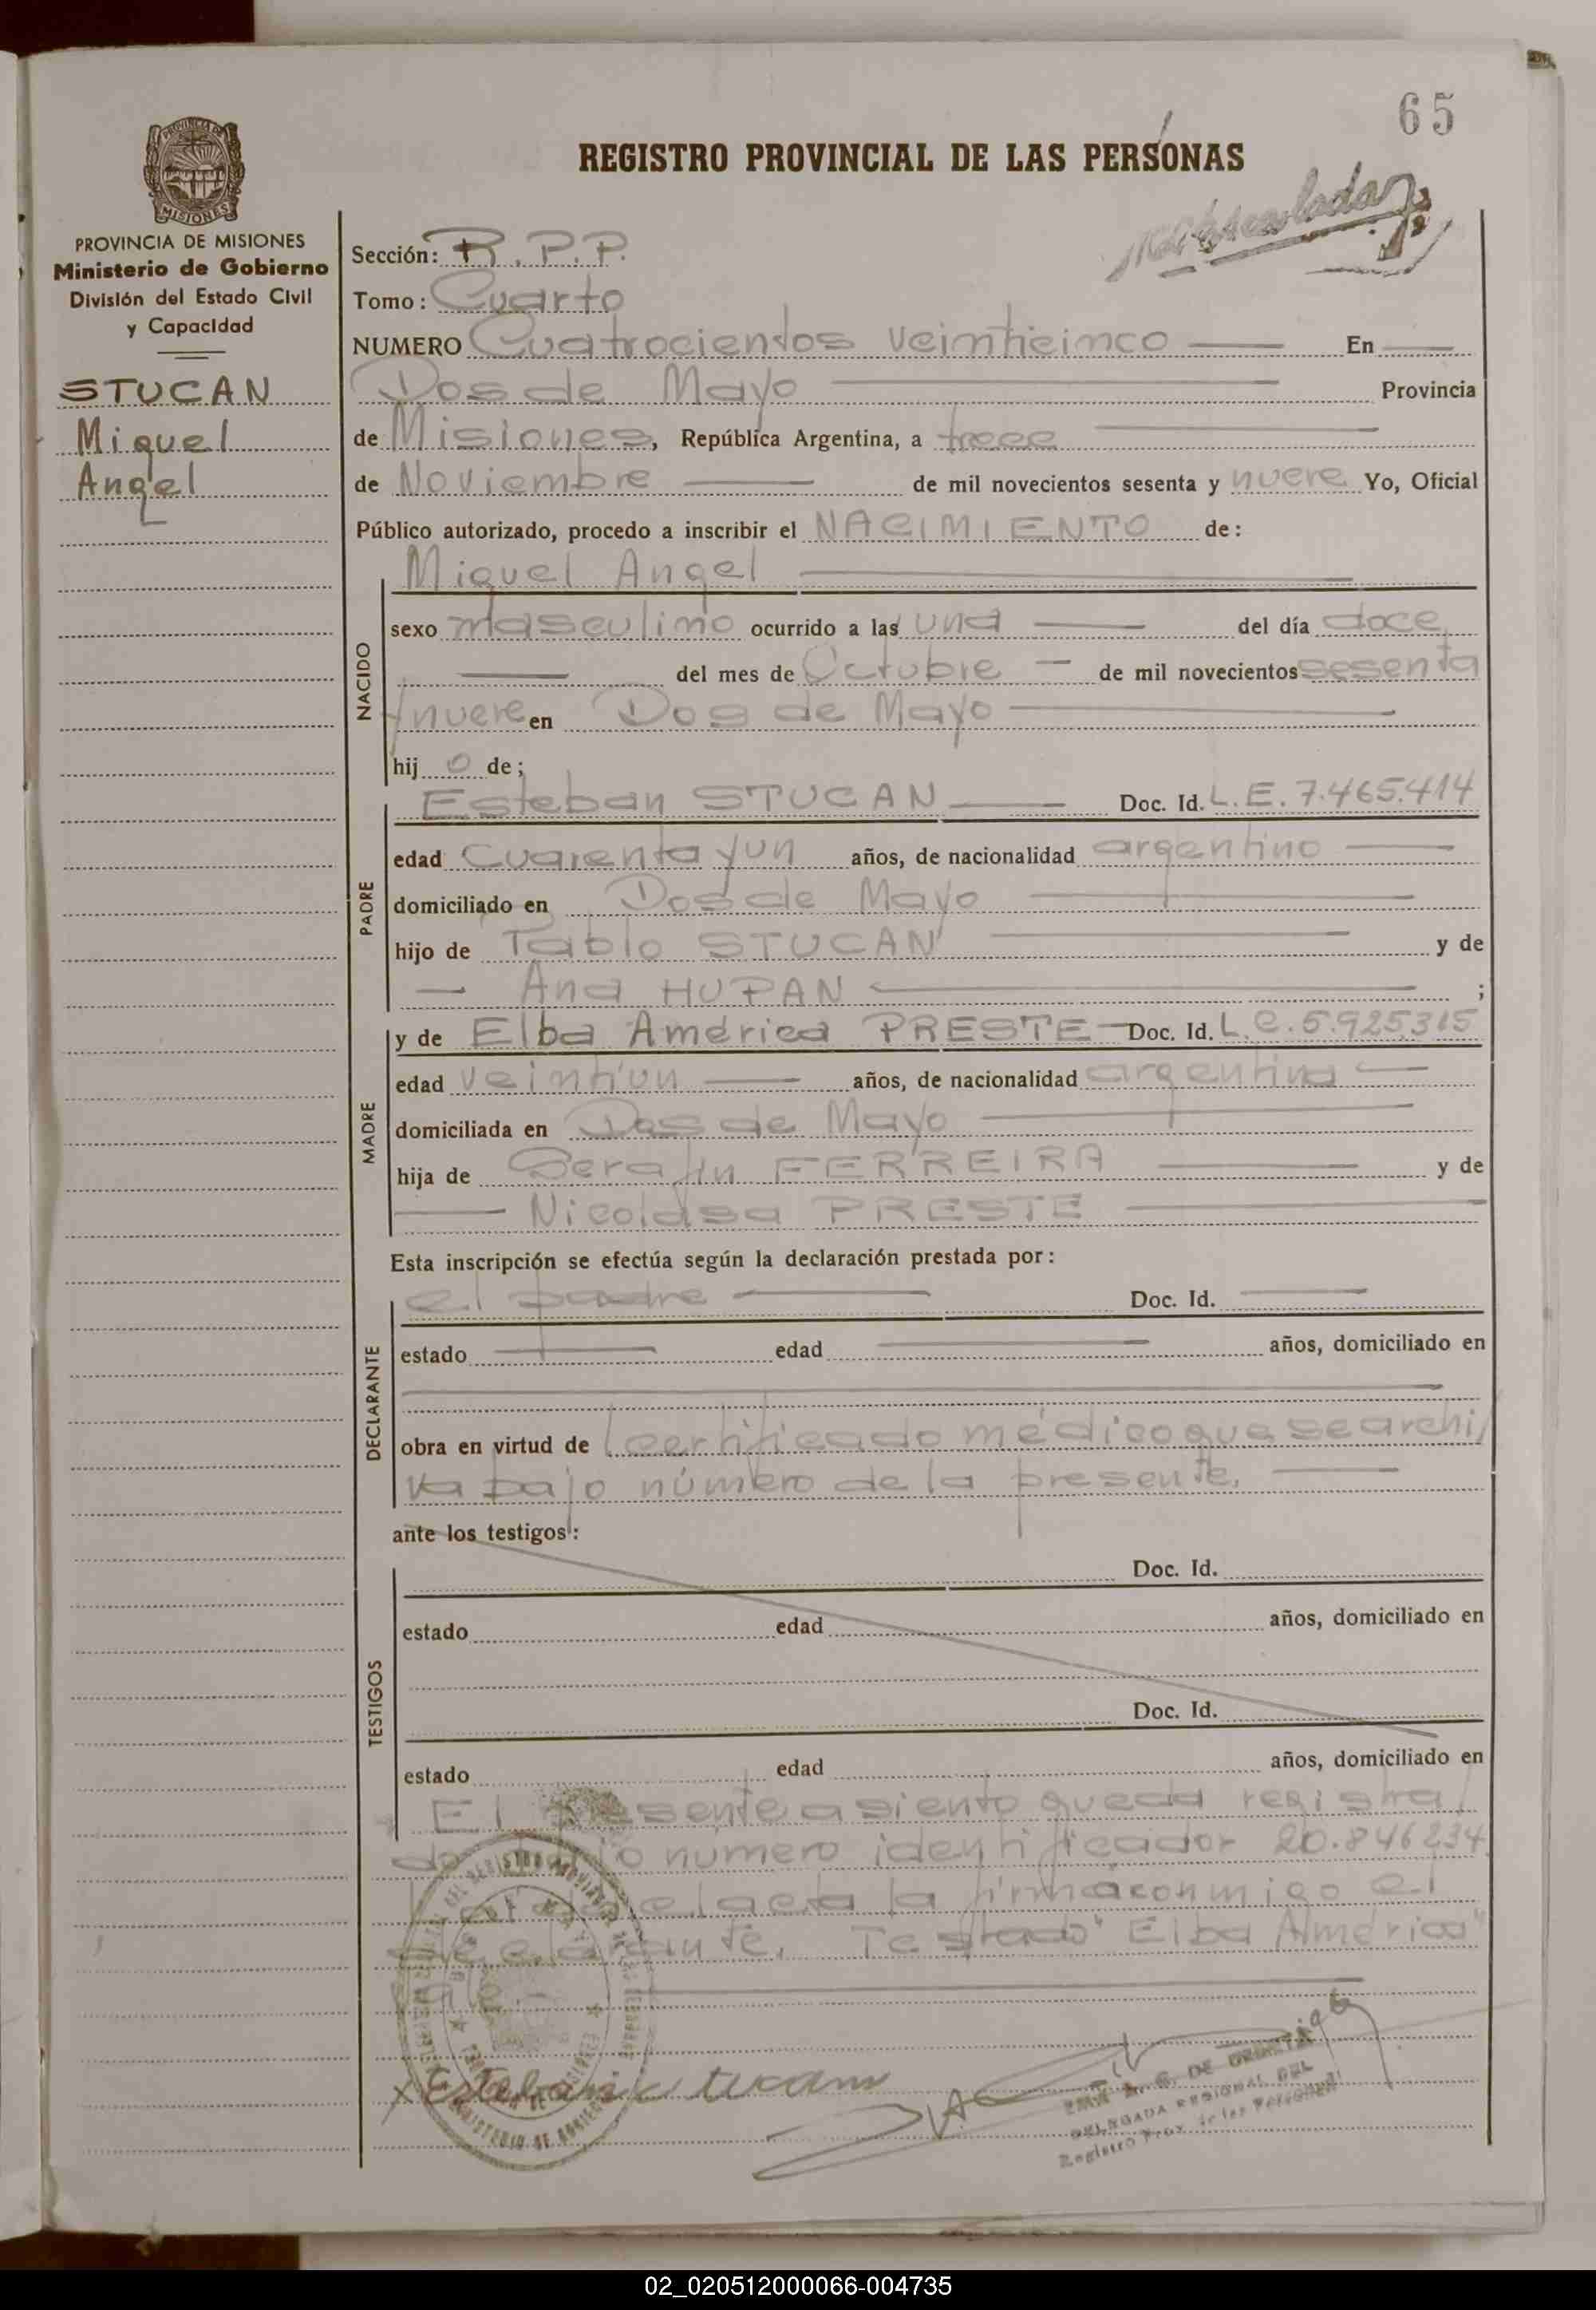 65
REGISTRO PROVINCIAL DE LAS PERSONAS
PROVINCIA DE MISIONES
Ministerio de Gobierno
División del Estado Civil
y Capacidad
STUCAN
Miguel
Angel
Sección: R.P.P.
Tomo: Cuarto
NUMERO Cuatrocientos veinticinco En
Dos de Mayo Provincia
de Misiones, República Argentina, a trece
de Noviembre de mil novecientos sesenta y nueve Yo, Oficial
Público autorizado, procedo a inscribir el NACIMIENTO de:
Miguel Angel
NACIDO
sexo masculino ocurrido a las una del día doce
del mes de Octubre de mil novecientos sesenta
y nueve en Dos de Mayo
hij o de;
PADRE
Esteban STUCAN Doc. Id. L.E. 7.465.414
edad Cuarenta y un años, de nacionalidad argentino
domiciliado en Dos de Mayo
hijo de Pablo STUCAN y de
Ana HUPAN ;
MADRE
y de Elba América PRESTE Doc. Id. L.C. 5.925.315
edad veintiun años, de nacionalidad argentina
domiciliada en Dos de Mayo
hija de Serafin FERREIRA y de
Nicolasa PRESTE
Esta inscripción se efectúa según la declaración prestada por:
DECLARANTE
el padre Doc. Id.
estado edad años, domiciliado en
obra en virtud de certificado médico que se archi
va bajo número de la presente.
ante los testigos:
TESTIGOS
Doc. Id.
estado edad años, domiciliado en
Doc. Id.
estado edad años, domiciliado en
El presente asiento queda registra
do bajo número identificador 20.846234
el acta la firma conmigo el
declarante. Testado "Elba América"
vale.
Esteban Stucan
DELEGADA REGIONAL DEL
Registro Prov. de las Personas
02_020512000066-004735